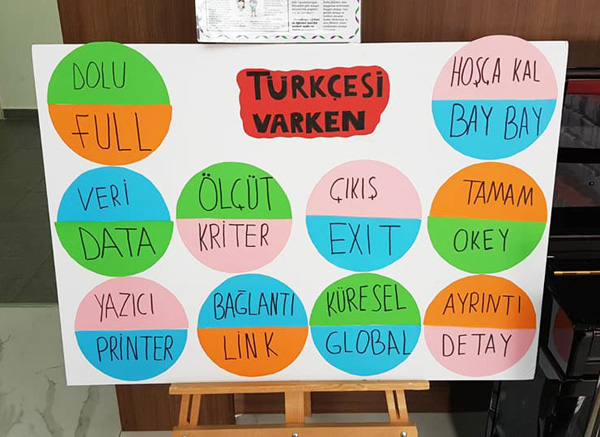 DOLU
FULL
TÜRKÇESİ
VARKEN
HOŞÇA KAL
BAY BAY
VERİ
DATA
ÖLÇÜT
KRİTER
ÇIKIŞ
EXIT
TAMAM
OKEY
YAZICI
PRİNTER
BAĞLANTI
LİNK
KÜRESEL
GLOBAL
AYRINTI
DETAY